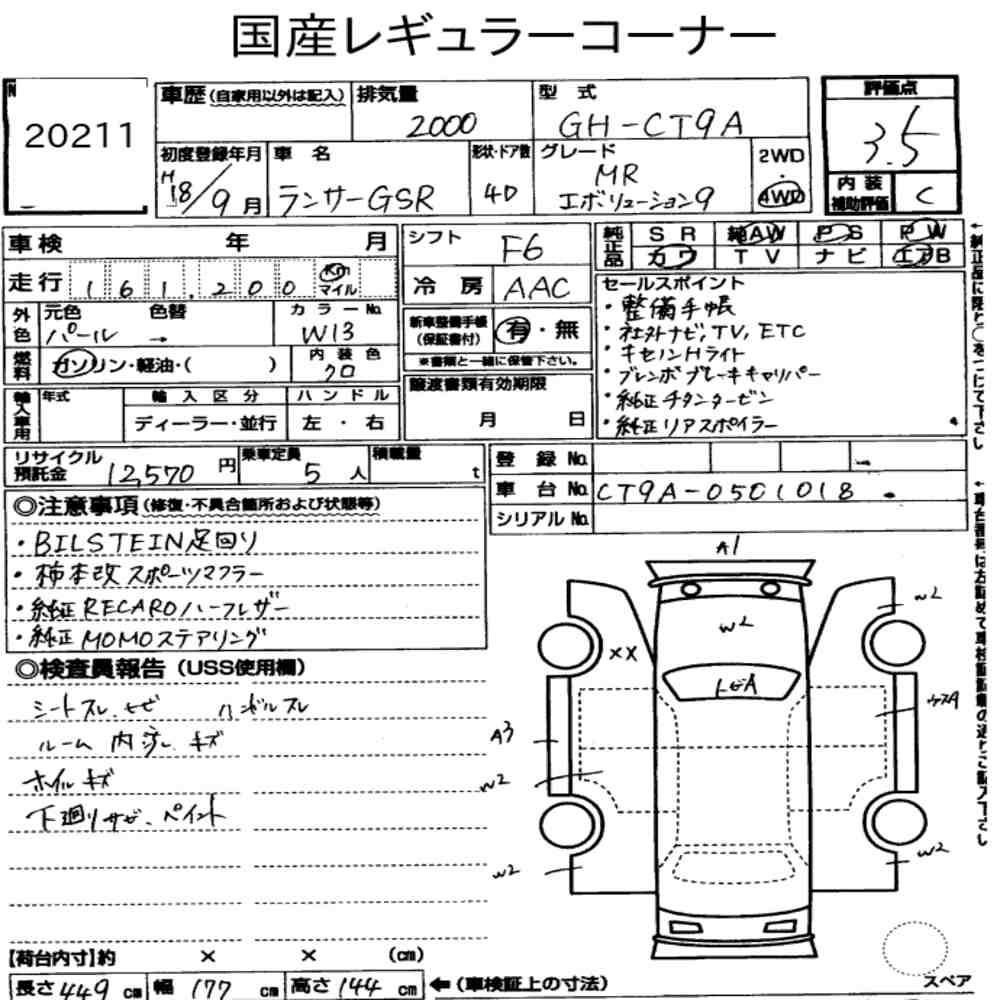 国産レギュラーコーナー
20211
車歴 (自家用以外は記入)
排気量
2000
型 式
GH-CT9A
評価点
3.5
内装補助評価
C
初度登録年月
H18/9月
車 名
ランサーGSR
形状・ドア数
4D
グレード
MR
エボリューション9
2WD
4WD
車検 年 月
走行 161,200 Km マイル
シフト F6
冷房 AAC
純正品
SR 純AW PS PW
カワ TV ナビ エアB
外色
元色 色替
パール →
カラーNo.
W13
燃料
ガソリン・軽油・( )
内装色
クロ
新車整備手帳
(保証書付)
有・無
※書類と一緒に保管下さい。
譲渡書類有効期限
月 日
輸入車用
年式
輸入区分
ディーラー・並行
ハンドル
左・右
セールスポイント
・整備手帳
・社外ナビ,TV,ETC
・キセノンHライト
・ブレンボブレーキキャリパー
・純正チタンタービン
・純正リアスポイラー
リサイクル
預託金 12,570 円
乗車定員 5 人
積載量 t
登録No.
車台No. CT9A-0501018
シリアルNo.
◎注意事項 (修復・不具合箇所および状態等)
・BILSTEIN足回り
・柿本改スポーツマフラー
・純正RECAROハーフレザー
・純正MOMOステアリング
◎検査員報告 (USS使用欄)
シートスレ、
ハンドルスレ
ルーム内 キズ
ホイルキズ
下廻りサビ、ペイント
A1
W2
W2
XX
トビA
A3
W2
W2
W2
スペア
【荷台内寸】約 × × (cm)
長さ 449 cm 幅 177 cm 高さ 144 cm
←(車検証上の寸法)